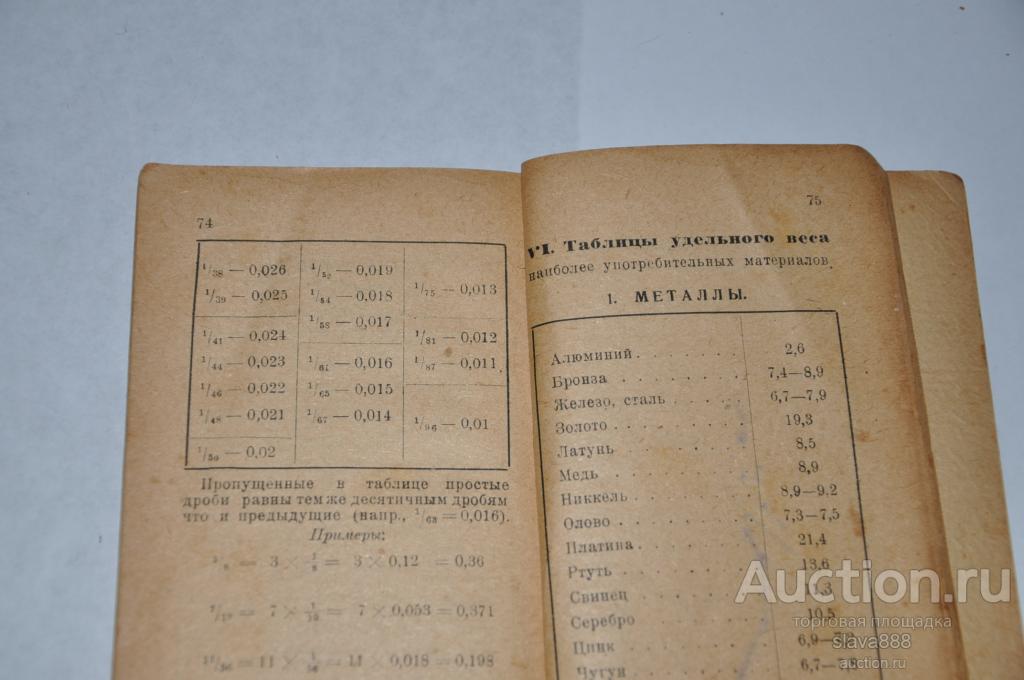 74
1/38 — 0,026
1/39 — 0,025
1/41 — 0,024
1/44 — 0,023
1/46 — 0,022
1/48 — 0,021
1/50 — 0,02
1/52 — 0,019
1/54 — 0,018
1/58 — 0,017
1/61 — 0,016
1/65 — 0,015
1/67 — 0,014
1/75 — 0,013
1/81 — 0,012
1/87 — 0,011
1/96 — 0,01
Пропущенные в таблице простые
дроби равны тем же десятичным дробям
что и предыдущие (напр., 1/63 = 0,016).
Примеры:
3/8 = 3 × 1/8 = 3 × 0,12 = 0,36
7/19 = 7 × 1/19 = 7 × 0,053 = 0,371
11/56 = 11 × 1/56 = 11 × 0,018 = 0,198
75
VI. Таблицы удельного веса
наиболее употребительных материалов.
1. МЕТАЛЛЫ.
Алюминий . . . . . . . 2,6
Бронза . . . . . . . . 7,4—8,9
Железо, сталь . . . . . 6,7—7,9
Золото . . . . . . . . 19,3
Латунь . . . . . . . . 8,5
Медь . . . . . . . . . 8,9
Никкель . . . . . . . 8,9—9,2
Олово . . . . . . . . 7,3—7,5
Платина . . . . . . . 21,4
Ртуть . . . . . . . . 13,6
Свинец . . . . . . . . 11,3
Серебро . . . . . . . 10,5
Цинк 6,9—
Чугун 6,7—
Auction.ru
торговая площадка
slava888
auction.ru